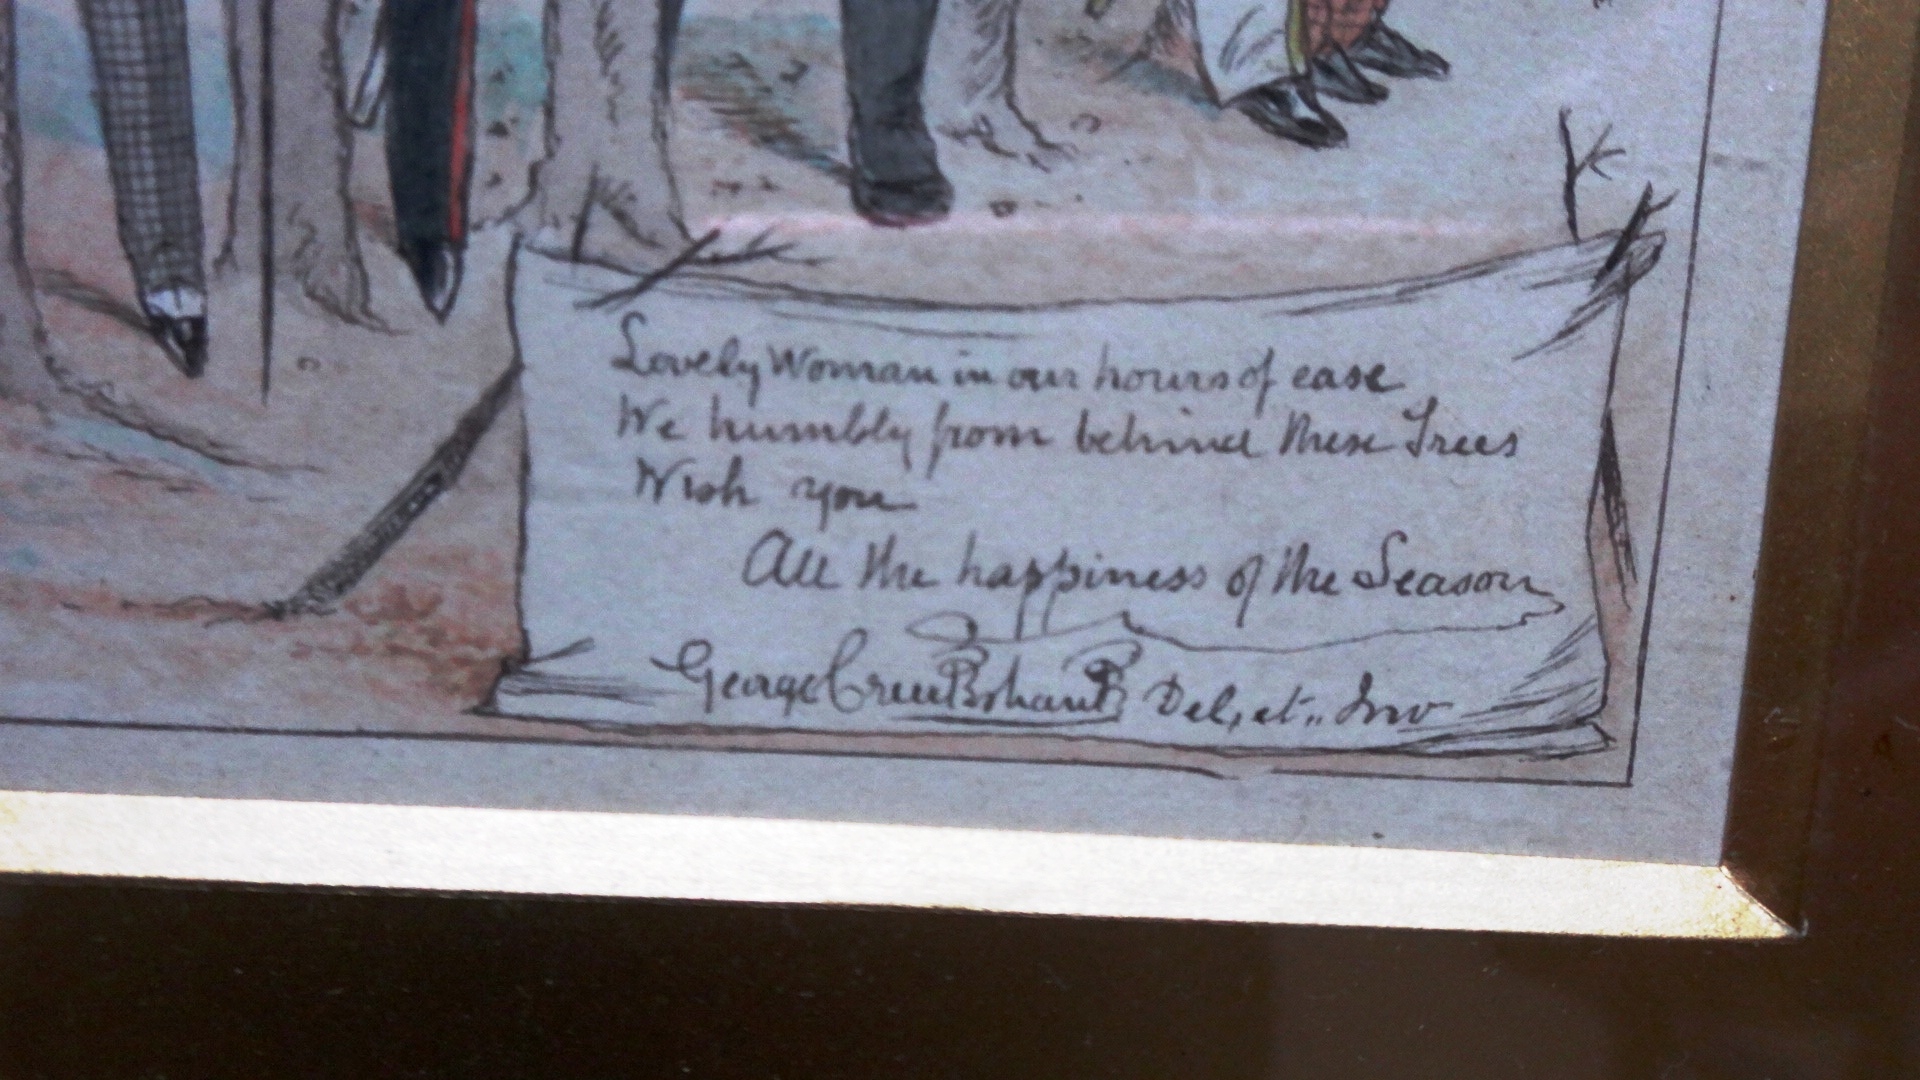 Lovely Woman in our hours of ease
We humbly from behind these Trees
Wish you
All the happiness of the Season
George CruikshanK Del, et., Inv